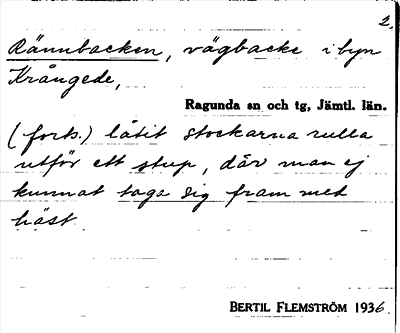 2.
Rännbacken, vägbacke i byn
Krångede,
Ragunda sn och tg, Jämtl. län.
(forts.) låtit stockarna rulla
utför ett stup, där man ej
kunnat taga sig fram med
häst.
BERTIL FLEMSTRÖM 1936.